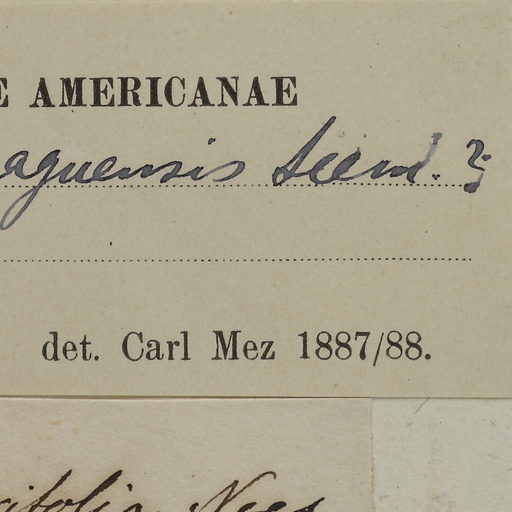 E AMERICANAE
aguensis Seem. ?
det. Carl Mez 1887/88.
cifolia Nees